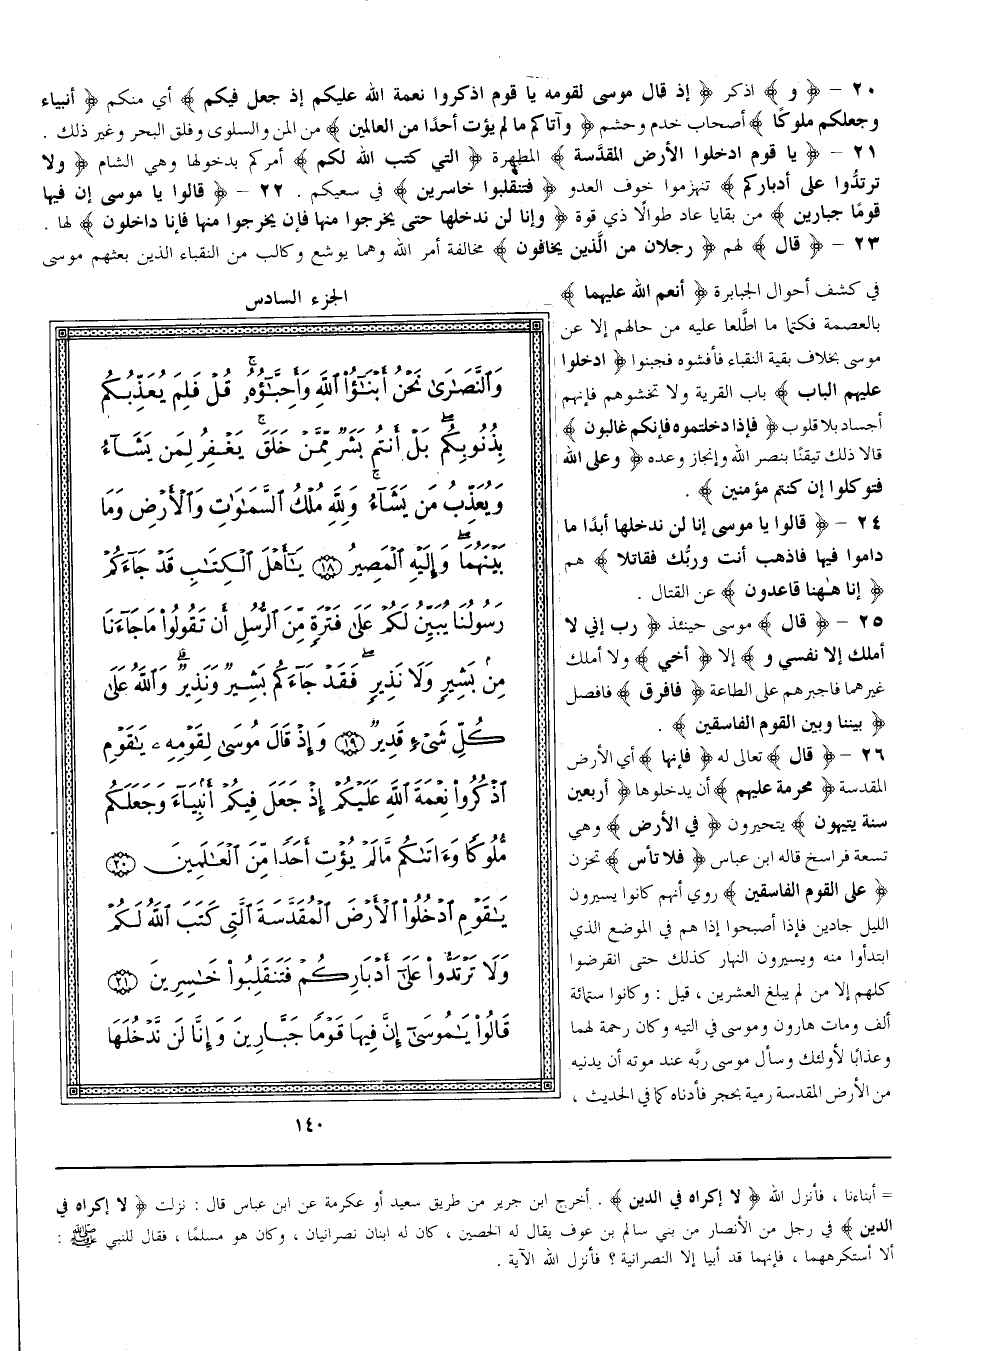 ٢٠ – ﴿ و ﴾ اذكر ﴿ إذ قال موسى لقومه يا قوم اذكروا نعمة الله عليكم إذ جعل فيكم ﴾ أي منكم ﴿ أنبياء
وجعلكم ملوكًا ﴾ أصحاب خدم وحشم ﴿ وآتاكم ما لم يؤت أحدًا من العالمين ﴾ من المن والسلوى وفلق البحر وغير ذلك .
٢١ – ﴿ يا قوم ادخلوا الأرض المقدَّسة ﴾ المطهرة ﴿ التي كتب الله لكم ﴾ أمركم بدخولها وهي الشام ﴿ ولا
ترتدُّوا على أدباركم ﴾ تنهزموا خوف العدو ﴿ فتنقلبوا خاسرين ﴾ في سعيكم . ٢٢ – ﴿ قالوا يا موسى إن فيها
قومًا جبارين ﴾ من بقايا عاد طوالًا ذي قوة ﴿ وإنا لن ندخلها حتى يخرجوا منها فإن يخرجوا منها فإنا داخلون ﴾ لها .
٢٣ – ﴿ قال ﴾ لهم ﴿ رجلان من الَّذين يخافون ﴾ مخالفة أمر الله وهما يوشع وكالب من النقباء الذين بعثهم موسى
في كشف أحوال الجبابرة ﴿ أنعم الله عليهما ﴾
بالعصمة فكتما ما اطَّلعا عليه من حالهم إلا عن
موسى بخلاف بقية النقباء فأفشوه فجبنوا ﴿ ادخلوا
عليهم الباب ﴾ باب القرية ولا تخشوهم فإنهم
أجساد بلا قلوب ﴿ فإذا دخلتموه فإنكم غالبون ﴾
قالا ذلك تيقنًا بنصر الله وإنجاز وعده ﴿ وعلى الله
فتوكلوا إن كنتم مؤمنين ﴾ .
٢٤ – ﴿ قالوا يا موسى إنا لن ندخلها أبدًا ما
داموا فيها فاذهب أنت وربُّك فقاتلا ﴾ هم
﴿ إنا هٰهنا قاعدون ﴾ عن القتال .
٢٥ – ﴿ قال ﴾ موسى حينئذ ﴿ رب إني لا
أملك إلا نفسي و ﴾ إلا ﴿ أخي ﴾ ولا أملك
غيرهما فاجبرهم على الطاعة ﴿ فافرق ﴾ فافصل
﴿ بيننا وبين القوم الفاسقين ﴾ .
٢٦ – ﴿ قال ﴾ تعالى له ﴿ فإنها ﴾ أي الأرض
المقدسة ﴿ محرمة عليهم ﴾ أن يدخلوها ﴿ أربعين
سنة يتيهون ﴾ يتحيرون ﴿ في الأرض ﴾ وهي
تسعة فراسخ قاله ابن عباس ﴿ فلا تأس ﴾ تحزن
﴿ على القوم الفاسقين ﴾ روي أنهم كانوا يسيرون
الليل جادين فإذا أصبحوا إذا هم في الموضع الذي
ابتدأوا منه ويسيرون النهار كذلك حتى انقرضوا
كلهم إلا من لم يبلغ العشرين ، قيل : وكانوا ستمائة
ألف ومات هارون وموسى في التيه وكان رحمة لهما
وعذابًا لأولئك وسأل موسى ربَّه عند موته أن يدنيه
من الأرض المقدسة رمية بحجر فأدناه كما في الحديث ،
الجزء السادس
وَٱلنَّصَٰرَىٰ نَحْنُ أَبْنَٰٓؤُا۟ ٱللَّهِ وَأَحِبَّٰٓؤُهُۥ ۚ قُلْ فَلِمَ يُعَذِّبُكُم
بِذُنُوبِكُم ۖ بَلْ أَنتُم بَشَرٌ مِّمَّنْ خَلَقَ ۚ يَغْفِرُ لِمَن يَشَآءُ
وَيُعَذِّبُ مَن يَشَآءُ ۚ وَلِلَّهِ مُلْكُ ٱلسَّمَٰوَٰتِ وَٱلْأَرْضِ وَمَا
بَيْنَهُمَا ۖ وَإِلَيْهِ ٱلْمَصِيرُ ١٨ يَٰٓأَهْلَ ٱلْكِتَٰبِ قَدْ جَآءَكُمْ
رَسُولُنَا يُبَيِّنُ لَكُمْ عَلَىٰ فَتْرَةٍ مِّنَ ٱلرُّسُلِ أَن تَقُولُوا۟ مَا جَآءَنَا
مِنۢ بَشِيرٍ وَلَا نَذِيرٍ ۖ فَقَدْ جَآءَكُم بَشِيرٌ وَنَذِيرٌ ۗ وَٱللَّهُ عَلَىٰ
كُلِّ شَىْءٍ قَدِيرٌ ١٩ وَإِذْ قَالَ مُوسَىٰ لِقَوْمِهِۦ يَٰقَوْمِ
ٱذْكُرُوا۟ نِعْمَةَ ٱللَّهِ عَلَيْكُمْ إِذْ جَعَلَ فِيكُمْ أَنۢبِيَآءَ وَجَعَلَكُم
مُّلُوكًا وَءَاتَىٰكُم مَّا لَمْ يُؤْتِ أَحَدًا مِّنَ ٱلْعَٰلَمِينَ ٢٠
يَٰقَوْمِ ٱدْخُلُوا۟ ٱلْأَرْضَ ٱلْمُقَدَّسَةَ ٱلَّتِى كَتَبَ ٱللَّهُ لَكُمْ
وَلَا تَرْتَدُّوا۟ عَلَىٰٓ أَدْبَارِكُمْ فَتَنقَلِبُوا۟ خَٰسِرِينَ ٢١
قَالُوا۟ يَٰمُوسَىٰٓ إِنَّ فِيهَا قَوْمًا جَبَّارِينَ وَإِنَّا لَن نَّدْخُلَهَا
١٤٠
= أبناءنا ، فأنزل الله ﴿ لا إكراه في الدين ﴾ . أخرج ابن جرير من طريق سعيد أو عكرمة عن ابن عباس قال : نزلت ﴿ لا إكراه في
الدين ﴾ في رجل من الأنصار من بني سالم بن عوف يقال له الحصين ، كان له ابنان نصرانيان ، وكان هو مسلمًا ، فقال للنبي ﷺ :
ألا أستكرههما ، فإنهما قد أبيا إلا النصرانية ؟ فأنزل الله الآية .